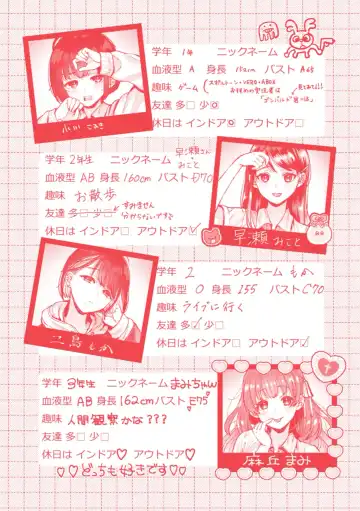 学年 1年 ニックネーム
血液型 A 身長 152cm バスト A65
趣味 ゲーム
友達 多□ 少☑
休日は インドア☑ アウトドア□
小川 こあき
学年 2年生 ニックネーム 早瀬さん みこと
血液型 AB 身長 160cm バスト E70
趣味 お散歩
友達 多□ 少□ すみません 分からないです
休日は インドア□ アウトドア☑
早瀬 みこと
学年 2 ニックネーム もか
血液型 O 身長 155 バスト C70
趣味 ライブに行く
友達 多☑ 少□
休日は インドア□ アウトドア☑
二鳥 もか
学年 3年生 ニックネーム まみちゃん
血液型 AB 身長 162cm バスト E75
趣味 人間観察かな???
友達 多□ 少□
休日は インドア♡ アウトドア♡
♡♡どっちも好きです♡♡
麻丘 まみ